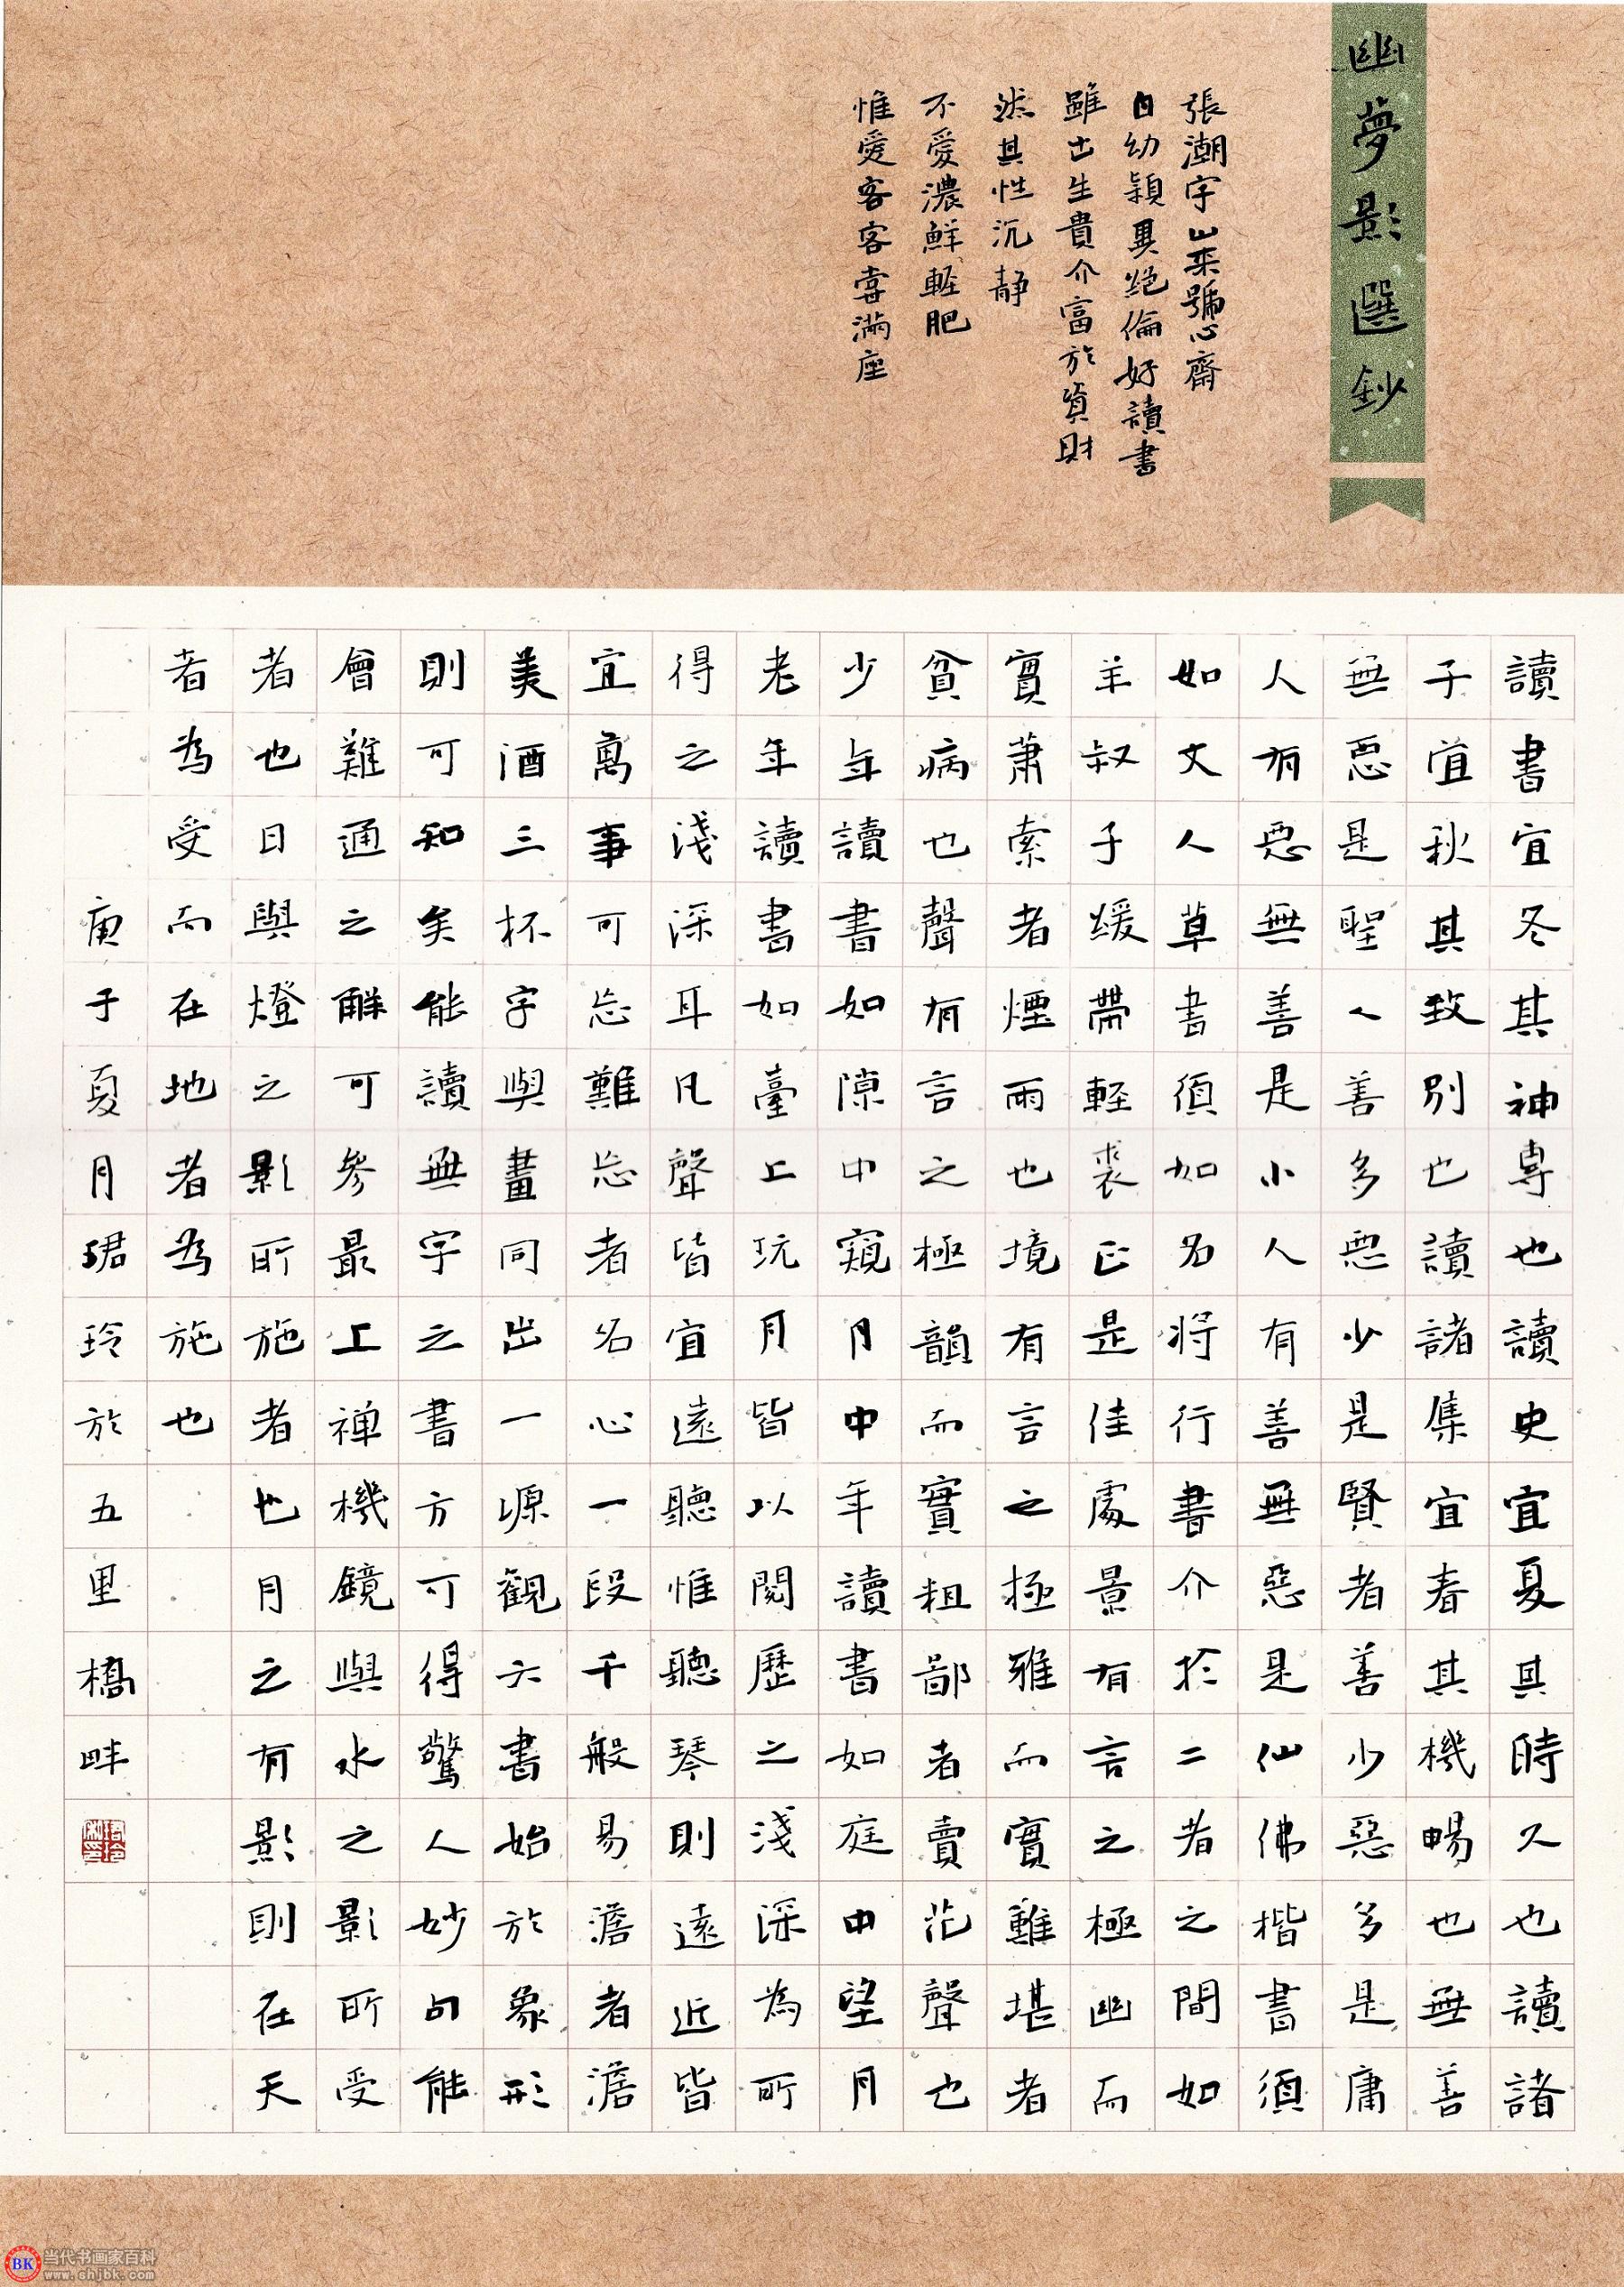 幽夢影選鈔
張潮字山來號心齋
自幼穎異絕倫好讀書
雖出生貴介富於資財
然其性沉静
不愛濃鮮輕肥
惟愛客客嘗滿座
讀書宜冬其神專也讀史宜夏其時久也讀諸
子宜秋其致別也讀諸集宜春其機暢也無善
無惡是聖人善多惡少是賢者善少惡多是庸
人有惡無善是小人有善無惡是仙佛楷書須
如文人草書須如名將行書介於二者之間如
羊叔子緩帶輕裘正是佳處景有言之極幽而
實蕭索者煙雨也境有言之極雅而實難堪者
貧病也聲有言之極韻而實粗鄙者賣花聲也
少年讀書如隙中窺月中年讀書如庭中望月
老年讀書如臺上玩月皆以閱歷之淺深為所
得之淺深耳凡聲皆宜遠聽惟聽琴則遠近皆
宜萬事可忘難忘者名心一段千般易澹者澹
美酒三杯字與畫同出一源觀六書始於象形
則可知矣能讀無字之書方可得驚人妙句能
會難通之解可參最上禅機鏡與水之影所受
者也日與燈之影所施者也月之有影則在天
者為受而在地者為施也
庚子夏月珺玲於五里橋畔
BK 当代书画家百科
www.shjbk.com